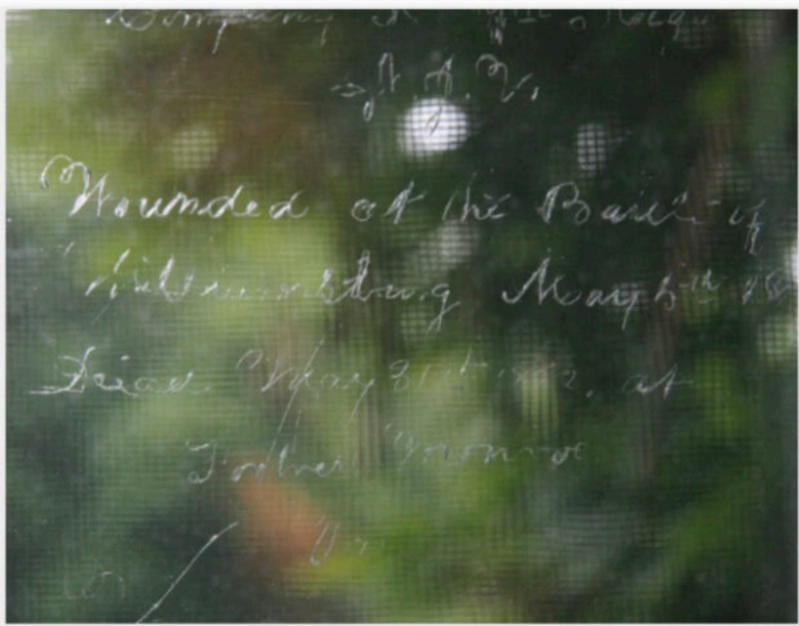 Company
Wounded at the Battle of
Williamsburg May 5th 18
Died May 31st 1862, at
Fortress Monroe